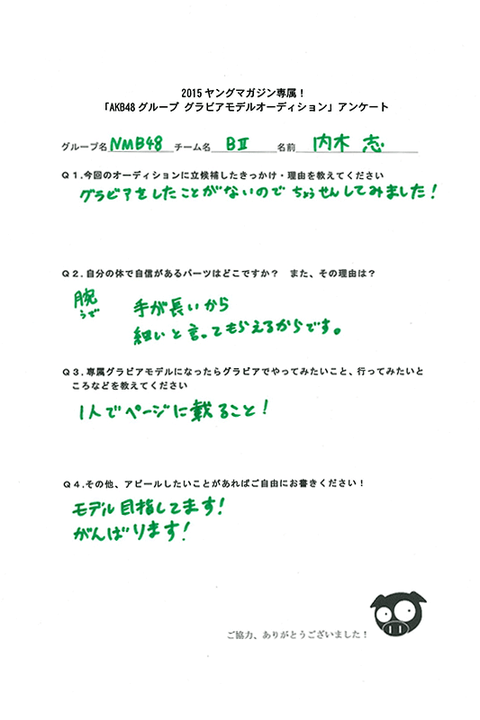 2015ヤングマガジン専属！
「AKB48グループ グラビアモデルオーディション」アンケート
グループ名 NMB48 チーム名 BⅡ 名前 内木 志
Q1.今回のオーディションに立候補したきっかけ・理由を教えてください
グラビアをしたことがないので ちょうせんしてみました！
Q2.自分の体で自信があるパーツはどこですか？ また、その理由は？
腕 手が長いから
うで 細いと言ってもらえるからです。
Q3.専属グラビアモデルになったらグラビアでやってみたいこと、行ってみたいと
ころなどを教えてください
1人でページに載ること！
Q4.その他、アピールしたいことがあればご自由にお書きください！
モデル目指してます！
がんばります！
ご協力、ありがとうございました！